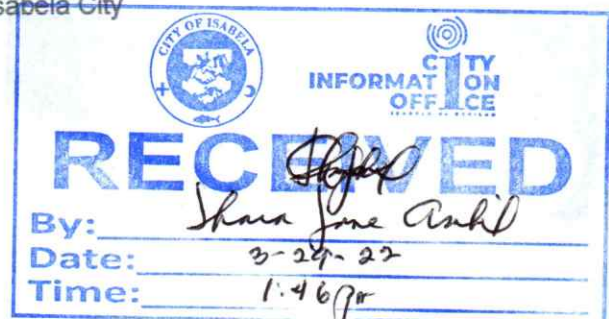 Isabela City
CITY OF ISABELA
CITY
INFORMATION
OFFICE
RECEIVED
By: Jane
Date: 3-29-22
Time: 1:46 pm